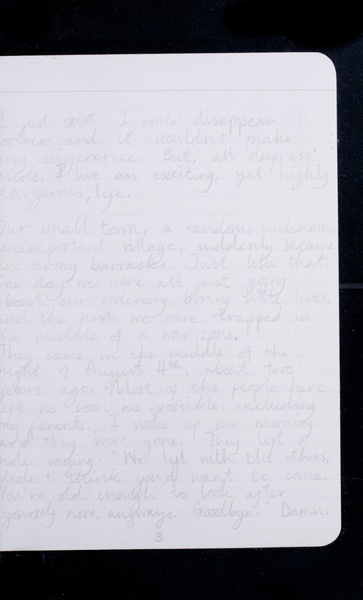 I just exist. I could disappear
forever and it wouldn't make
any difference. But, all 'deepness'
aside, I live an exciting, yet highly
dangerous, life.
Our small town, a random, unknown,
unimportant village, suddenly became
an army barracks. Just like that.
One day we were all just going
about our ordinary, boring little lives,
and the next we were trapped in
the middle of a war zone.
They came in the middle of the
night of August 4th, about two
years ago. Most of the people here
left as soon as possible, including
my parents. I woke up one morning
and they were gone. They left a
note saying: "We left with the others,
didn't think you'd want to come.
You're old enough to look after
yourself now, anyways. Goodbye." Damn.
3